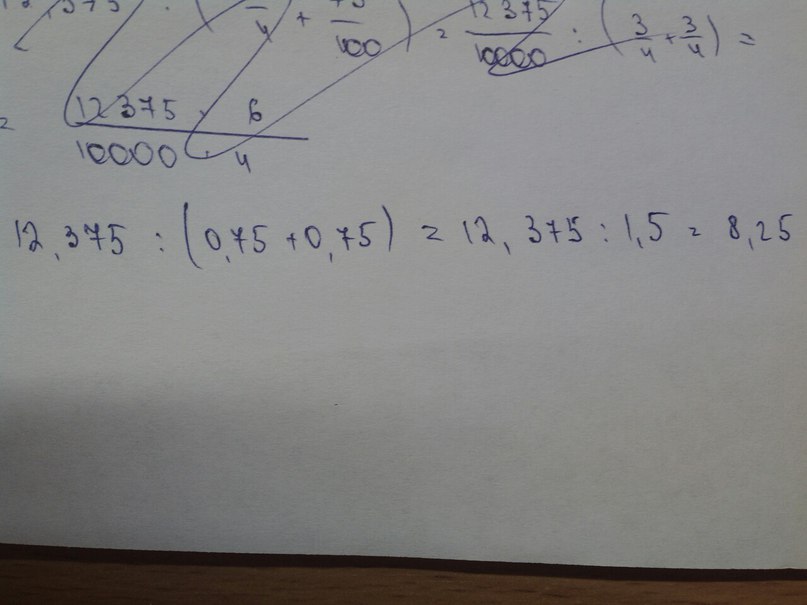 12,375 : ( /4 + 75/100 ) = 12375/10000 : (3/4 + 3/4) =
= 12375 · 6 / 10000 · 4
12,375 : (0,75 + 0,75) = 12,375 : 1,5 = 8,25